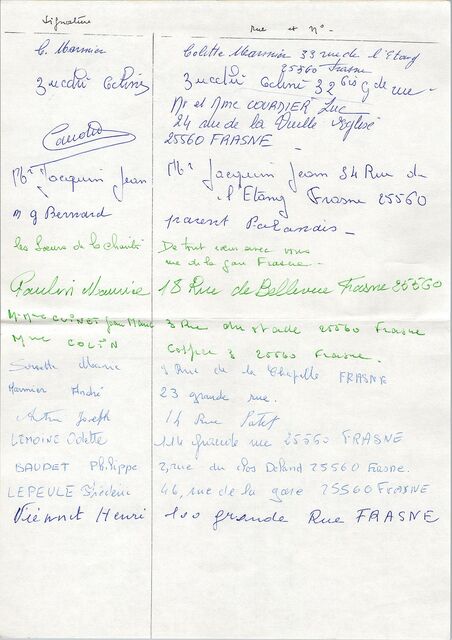 Signature rue et N°
C. Marmier Colette Marmier 33 rue de l'Etang
25560 Frasne
32 bis G de rue
Mr et Mme COURDIER Luc
24 rue de la Vieille Eglise
25560 FRASNE
Mr Jacquin Jean Mr Jacquin Jean 34 Rue de
l'Etang Frasne 25560
m g Bernard
les Sœurs de la charité De tout cœur avec vous
rue de la gare Frasne
Paulin Maurice 18 Rue de Bellevue Frasne 25560
3 Rue du stade 25560 Frasne
Mme COLIN 25560 Frasne.
Rue de la Chapelle FRASNE
Marmier André 23 grande rue.
Joseph 14 Rue
LEMOINE Odette 114 grande rue 25560 FRASNE
BAUDET Philippe 2, rue du clos 25560 Frasne.
LEPEULE Frédéric 46, rue de la gare 25560 FRASNE
Viennet Henri 100 grande Rue FRASNE